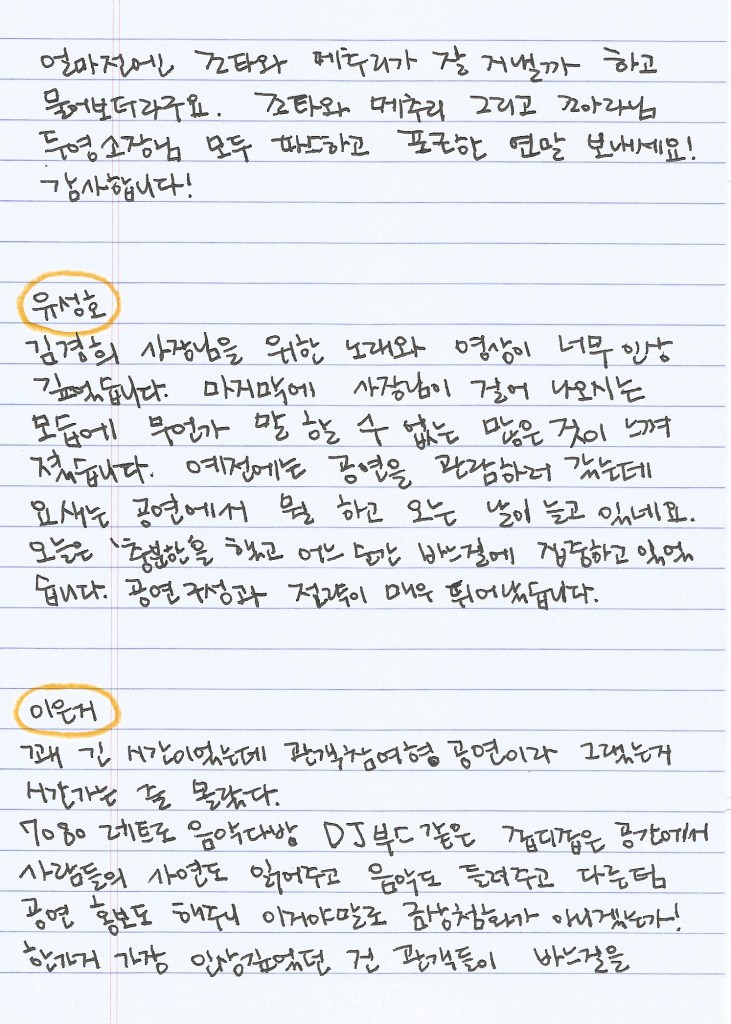 얼마전에는 조타와 메추리가 잘 지낼까 하고
물어보더라구요. 조타와 메추리 그리고 꼬아라님
두영소장님 모두 따뜻하고 포근한 연말 보내세요!
감사합니다!
유성호
김경희 사장님을 위한 노래와 영상이 너무 인상
깊었습니다. 마지막에 사장님이 걸어 나오시는
모습에 무언가 말 할 수 없는 많은 것이 느껴
졌습니다. 예전에는 공연을 관람하러 갔는데
요새는 공연에서 뭘 하고 오는 날이 늘고 있네요.
오늘은 '충분한'을 했고 어느 순간 바느질에 집중하고 있었
습니다. 공연구성과 전략이 매우 뛰어났습니다.
이은지
꽤 긴 시간이었는데 관객참여형 공연이라 그랬는지
시간가는 줄 몰랐다.
7080 레트로 음악다방 DJ부스같은 좁디좁은 공간에서
사람들의 사연도 읽어주고 음악도 들려주고 다른팀
공연 홍보도 해주니 이거야말로 금상첨화가 아니겠는가!
한가지 가장 인상깊었던 건 관객들이 바느질을